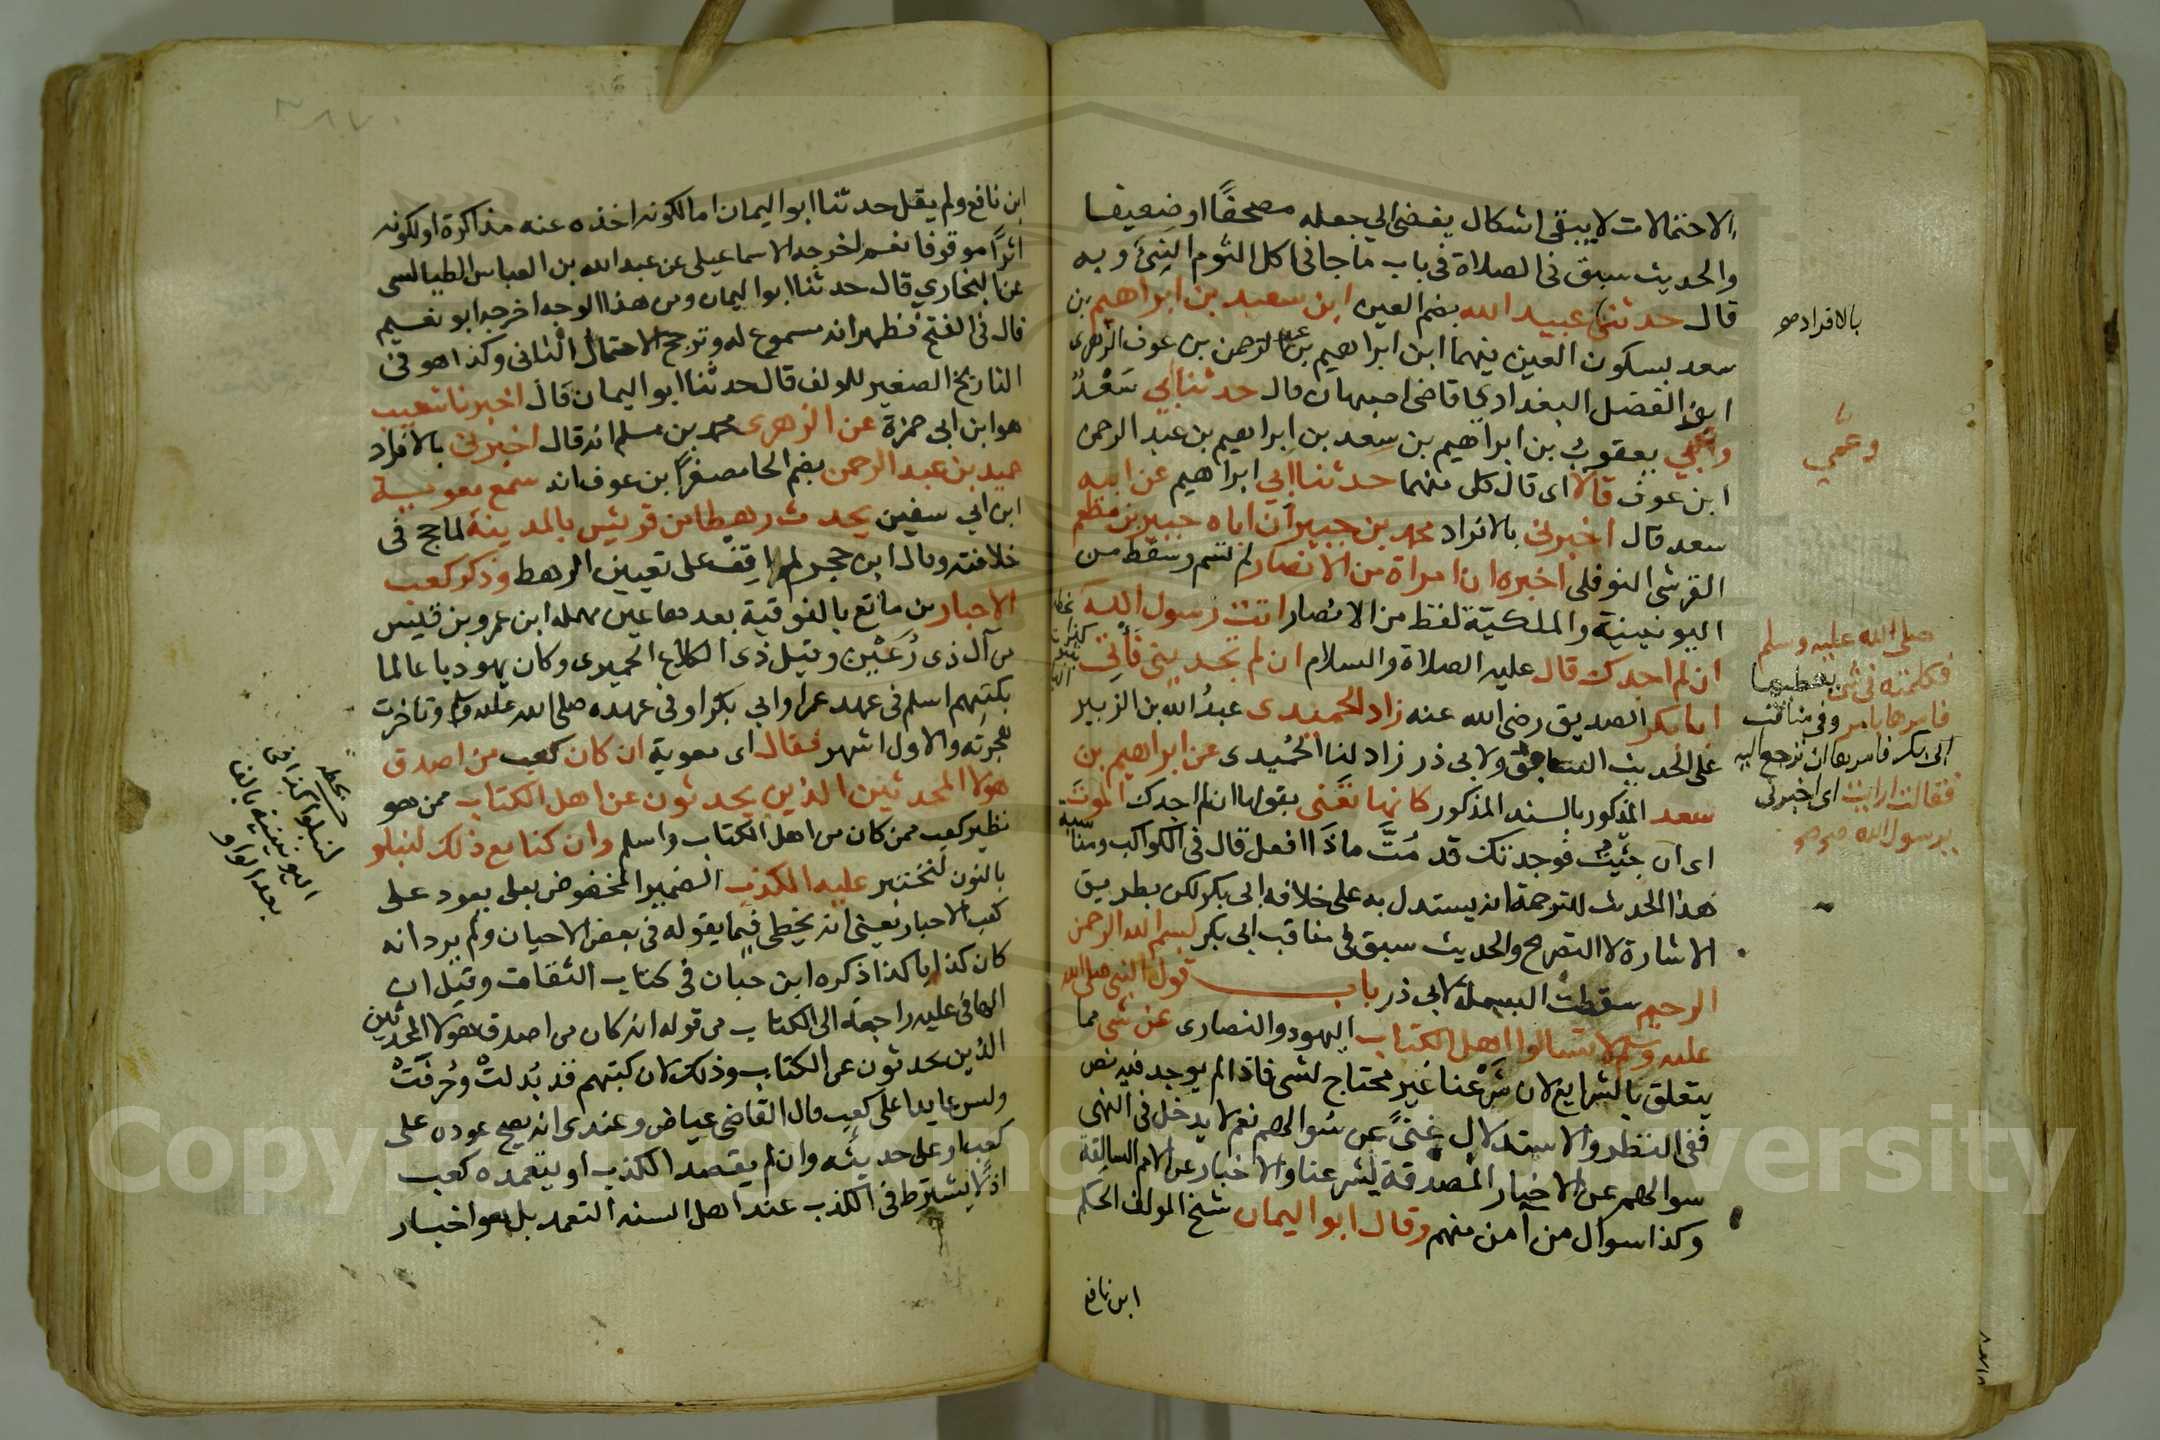 الاحتمالات لا يبقى اشكال يفضى الي جعله مصحفًا او ضعيفا
والحديث سبق فى الصلاة فى باب ما جا فى اكل الثوم النيئ وبه
قال حدثنى عبيد الله بضم العين ابن سعد بن ابراهيم بن
سعد بسكون العين فيهما ابن ابراهيم بن عبد الرحمن بن عوف الزهرى
ابو الفضل البغدادي قاضى اصبهان قال حدثنا أبي سَعْدٌ
وعمي يعقوب بن ابراهيم بن سعد بن ابراهيم بن عبد الرحمن
ابن عوف قالا اى قال كل منهما حدثنا ابي ابراهيم عن ابيه
سعد قال اخبرنى بالافراد محمد بن جبير ان اباه جبير بن مطعم
القرشى النوفلى اخبره ان امراة من الانصار لم تسم وسقط من
اليونينية والملكيّة لفظ من الانصار اتت رسول الله
ان لم اجدك قال عليه الصلاة والسلام ان لم تجدينى فأتى
ابا بكر الصديق رضى الله عنه زاد الحميدى عبدُ الله بن الزبير
على الحديث السابق ولابى ذر زاد لنا الحُميدى عن ابراهيم بن
سعد المذكور بالسند المذكور كانها تعنى بقولها ان لم اجدك الموتَ
اى ان جئتُ فوجدتك قد مُتَّ ماذا افعل قال فى الكواكب ومناسبة
هذا الحديث للترجمة انه يستدل به على خلافة ابى بكر لكن بطريق
الاشارة لا التصريح والحديث سبق فى مناقب ابى بكر بسم الله الرحمن
الرحيم سقطت البسملة لابى ذر باب قول النبى صلى الله
عليه وسلم لا تسالوا اهل الكتاب اليهود والنصارى عن شى مما
يتعلق بالشرايع لان شَرْعنا غير محتاج لشى فاذا لم يوجد فيه نص
ففى النظر والاستدلال غنىً عن سُوالهم نعم لا يدخل فى النهى
سوالهم عن الاخبار المصدقة لشرعنا والاخبار عن الامم السالفة
وكذا سوال من آمن منهم وقال ابو اليمان شيخ المولف الحَكم
ابن نافع
بالافراد صح
وعمّي
صلى الله عليه وسلم
فكلمته فى شى يعطيها
فامرها بامر وفى مناقب
ابى بكر فامرها ان ترجع اليه
فقالت ارايت اى اخبرنى
يرسول الله صح صح
ابن نافع ولم يقل حدثنا ابو اليمان اما لكونه اخذه عنه مذاكرة او لكونه
اثرًا موقوفا نعم اخرجه الاسماعيلى عن عبد الله بن العباس الطيالسى
عن البخاري قال حدثنا ابو اليمان ومن هذا الوجه اخرجه ابو نعيم
قال فى الفتح فظهر انه مسموع له وترجح الاحتمال الثانى وكذا هو فى
التاريخ الصغير للمولف قال حدثنا ابو اليمان قال اخبرنا شعيب
هو ابن ابى حمزة عن الزهرى محمد بن مسلم انه قال اخبرنى بالافراد
حميد بن عبد الرحمن بضم الحا مصغرًا بن عوف انه سمع معوية
ابن ابي سفين يحدث رهطا من قريش بالمدينة لما حج فى
خلافته وقال ابن حجر لم اقف على تعيين الرهط وذكر كعب
الاحبار بن ماتع بالفوقية بعدها عين مهملة ابن عمرو بن قيس
من آل ذى رُعَيْن وقيل ذى الكلاع الحميرى وكان يهوديا عالما
بكتبهم اسلم فى عهد عمر او ابي بكر او فى عهده صلى الله عليه وسلم وتاخرت
هجرته والاول اشهر فقال اى معوية ان كان كعب من اصدق
هولا المحدثين الذين يحدثون عن اهل الكتاب ممن هو
نظير كعب ممن كان من اهل الكتاب واسلم وان كنا مع ذلك لنبلو
بالنون لنختبر عليه الكذب الضمير المخفوض بعلى يعود على
كعب الاحبار يعنى انه يخطى فيما يقوله فى بعض الاحيان ولم يرد انه
كان كذابا كذا ذكره ابن حبان فى كتاب الثقات وقيل ان
الها فى عليه راجعة الى الكتاب من قوله ان كان من اصدق هولا المحدثين
الذين يحدثون عن الكتاب وذلك لان كبتهم قد بُدلتْ وحُرفَتْ
وليس عايدا على كعب قال القاضى عياض وعندى انه يصح عوده على
كعب او على حديثه وان لم يقصد الكذب او يتعمده كعب
اذ لا يشترط فى الكذب عند اهل السنه التعمد بل هو اخبار
بخطه
لنبلوا كذا فى
اليونينية بالف
بعد الواو
Copy King Versity